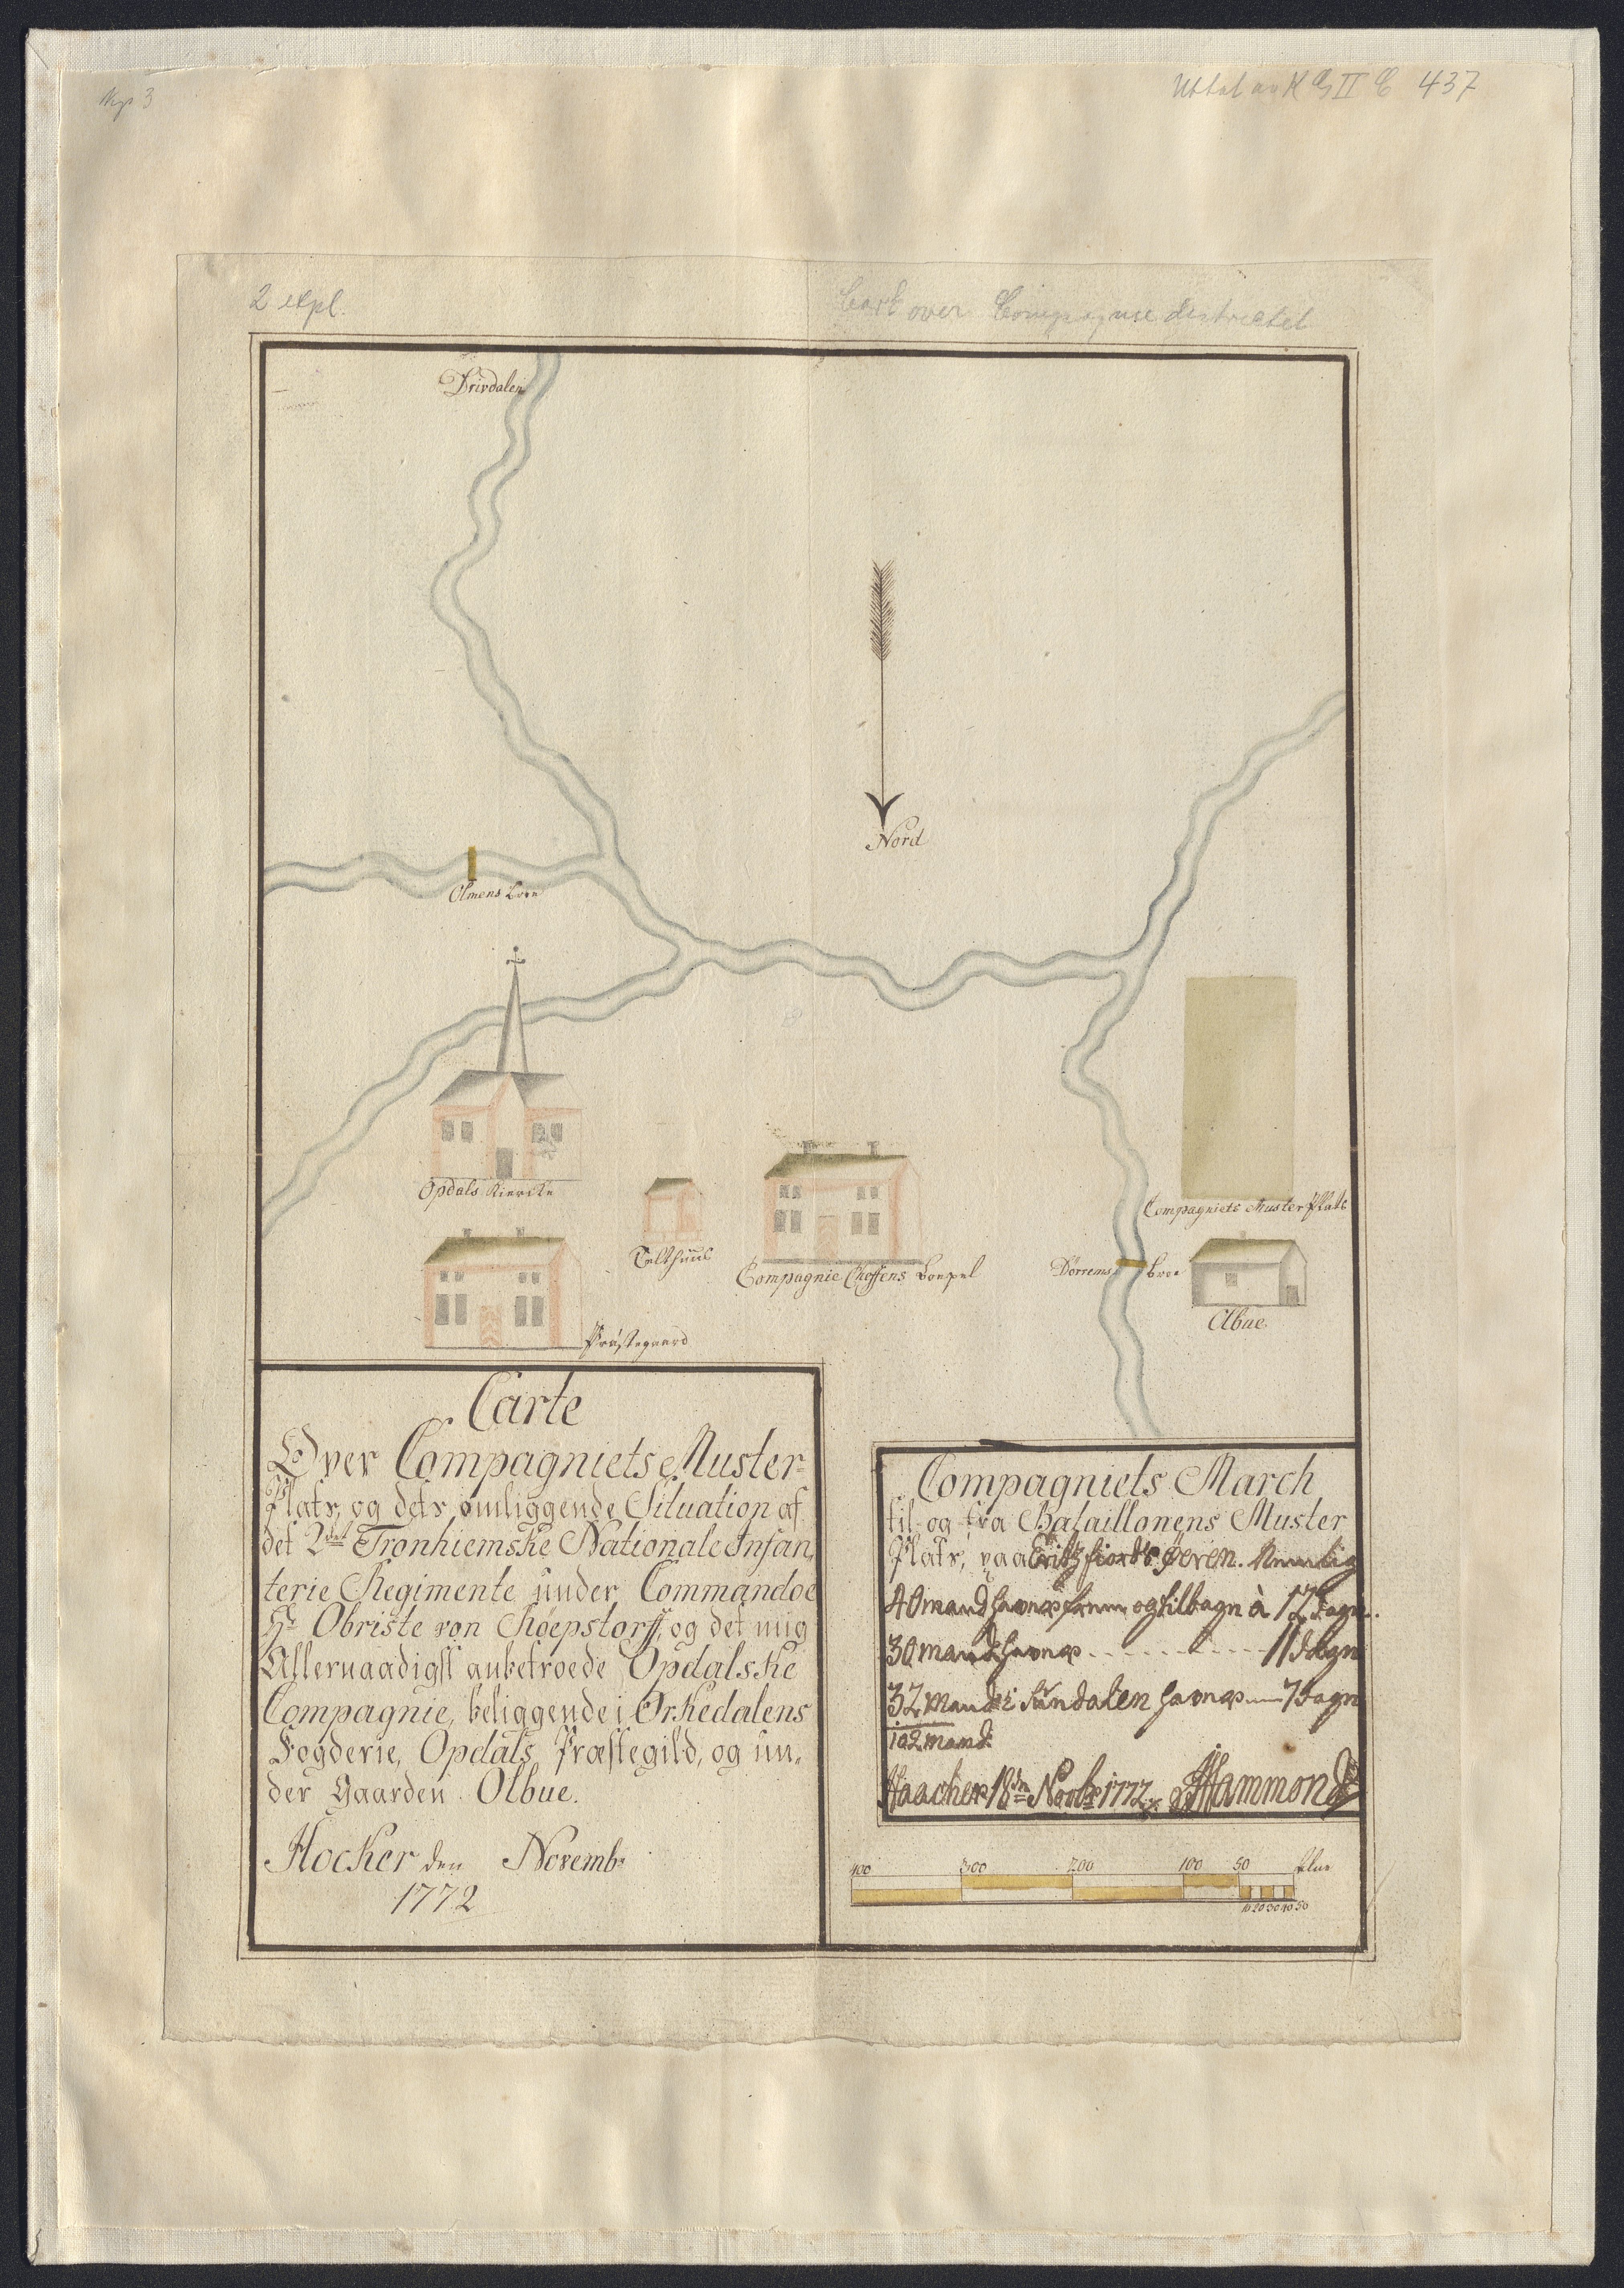 437
2 expl.
Cart over Compagnie districtet
Drivdalen
Nord
Olmens broe
Opdals Kiercke
Telthuus
Compagnie Cheffens Boepel
Præstegaard
Compagniets Muster Plats
Dörrems broe
Olbue
Carte
Over Compagniets Muster-
Plats, og dets omliggende Situation af
det 2det Tronhiemske Nationale Infan,,
terie Regimente under Commandoe
Hr Obriste von Röepstorff, og det mig
Allernaadigst anbetroede Opdalske
Compagnie, beliggende i Orkedalens
Fogderie, Opdals Præstegild, og un,,
der Gaarden Olbue.
Hocker den Novembr
1772
Compagniets March
til og fra Bataillonens Muster
Plats, paa øeren. Nemlig
40 mand frem og tilbage à 17 dage
30 mand 11 dage
32 mand i Sundalen 7 dage
102 mand.
Haacher 18de Novbr 1772 Hammond
400 300 200 100 50 Alne
10 20 30 40 50